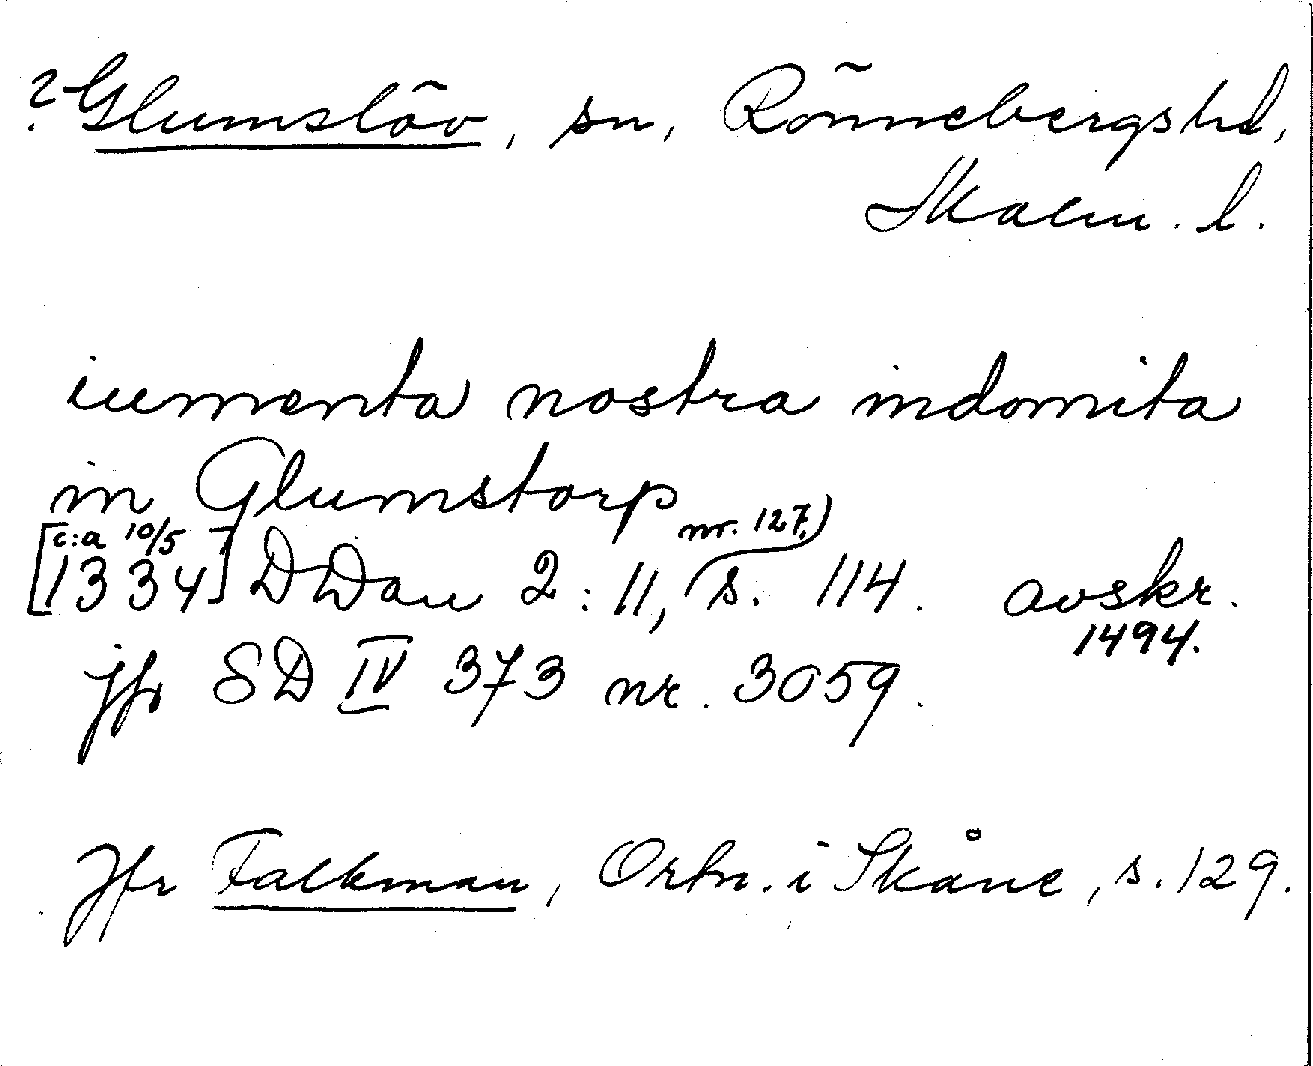 ? Glumslöv, sn, Rönnebergs hd,
Malm. l.
iumenta nostra indomita
in Glumstorp
[c:a 10/5 1334] DDan 2:11, s. 114. nr. 127. avskr.
1494.
jfr SD IV 373 nr. 3059.
Jfr Falkman, Ortn. i Skåne, s. 129.